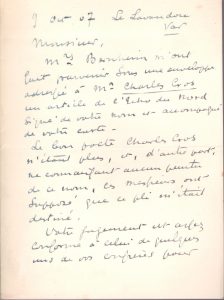 9 Oct 07 Le Lavandou
Var
Monsieur,
MM. Bernheim m'ont
fait parvenir sous une enveloppe
adressée à Mr Charles Cros
un article de l'Echo du Nord
signé de votre nom et accompagné
de votre carte.
Le bon poète Charles Cros
n'étant plus, et, d'autre part,
ne connaissant aucun peintre
de ce nom, ces Messieurs ont
supposé que ce pli m'était
destiné.
Votre jugement est assez
conforme à celui de quelques
uns de vos confrères pour